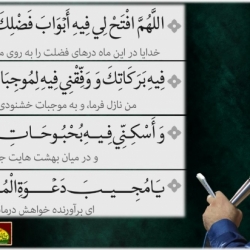 اللَّهُمَّ افْتَحْ لِي فِيهِ أَبْوَابَ فَضْلِكَ
خدایا در این ماه درهای فضلت را به روی م
فِيهِ بَرَكَاتِكَ وَ وَفِّقْنِي فِيهِ لِمُوجِبَا
من نازل فرما، و به موجبات خشنودی
وَ أَسْكِنِّي فِيهِ بُحْبُوحَاتِ
و در میان بهشت هایت ج
يَا مُجِيبَ دَعْوَةِ الْمُ
ای برآورنده خواهش درما